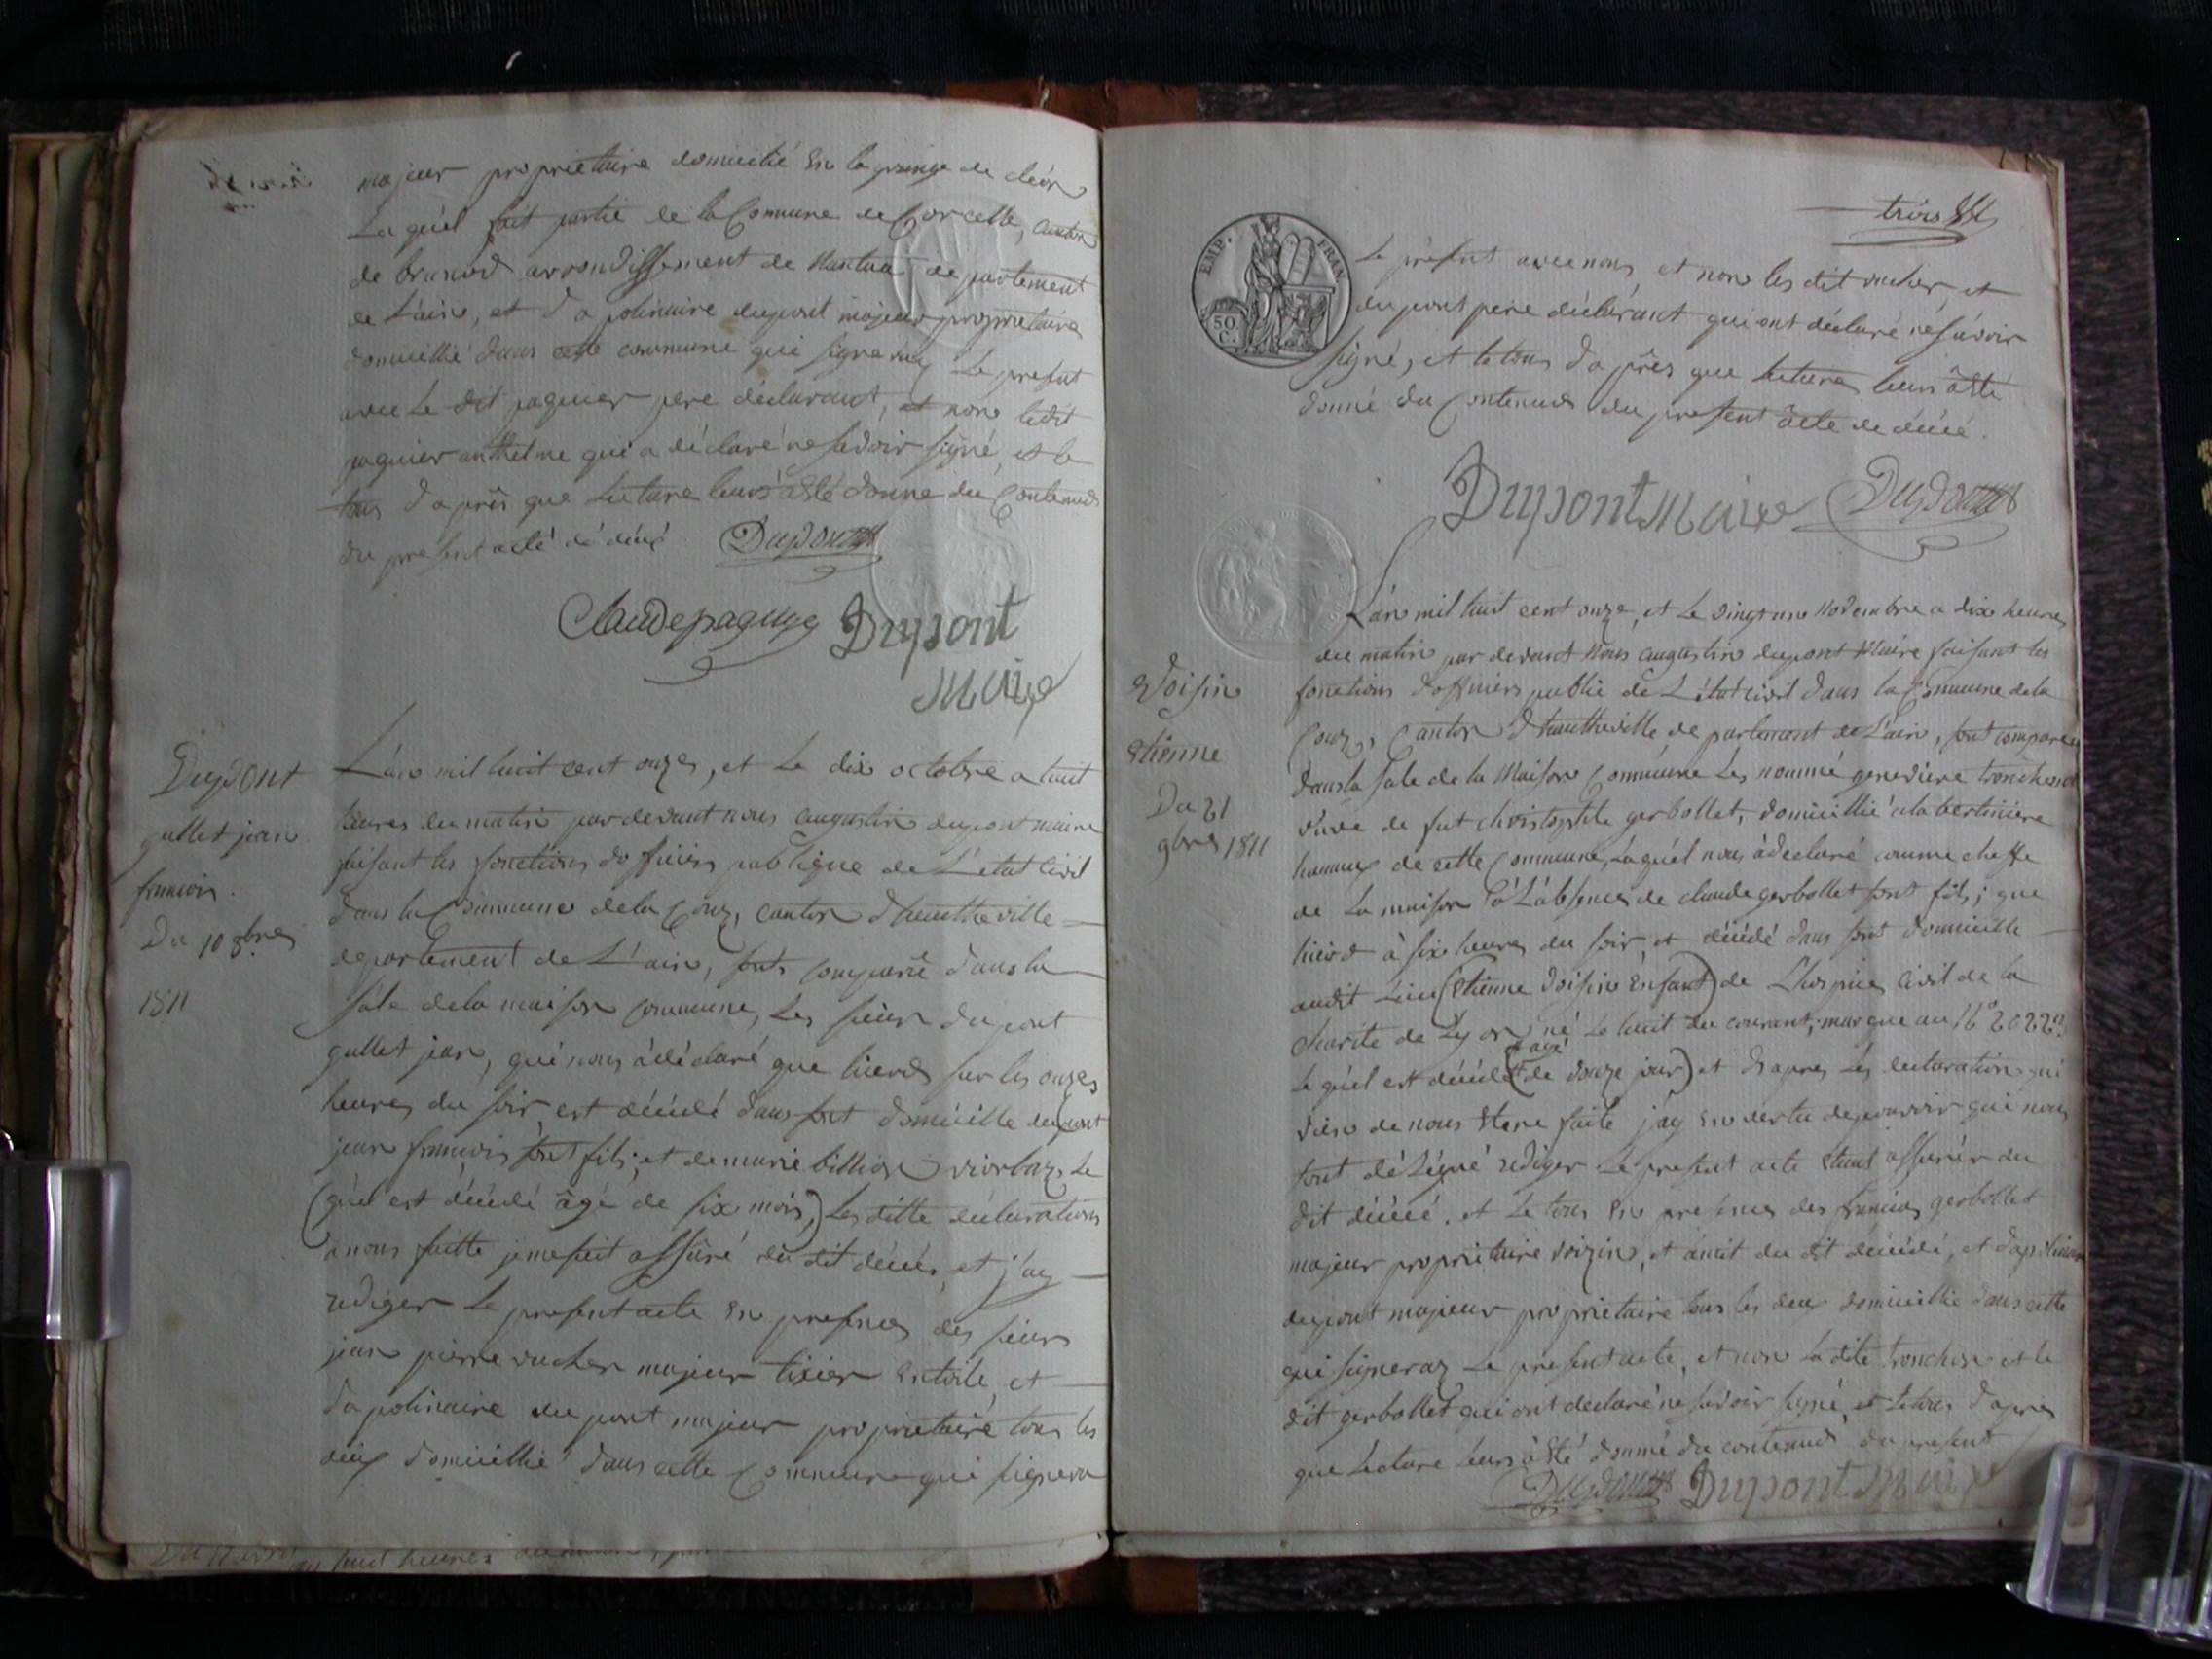 majeur propriétaire domicilié en la grange de cléon
Laquel fait partie de la Commune de Corcelle, Canton
de brenod arrondissement de Nantua de partement
de L'ain, et d'apolinaire dupont majeur propriétaire
domicillié dans cette commune qui signeray Le present
avec Le dit paquier pere déclarant, et non ledit
paquier anthelme qui a déclaré ne savoir signé, et le
tous d'après que Lecture leurs àété donné du Contenud
du present acté dé décé Dupont
Claude paquye Dupont
Maire
Dupont
gullet jean
francois.
Du 10 8bres
1811
L'an mil huit cent onze, et Le dix octobre a huit
heures du matin pardevant nous augustin dupont maire
faisant les fonctions d'officiers publique de L'état Civil
dans la Commune dela Couz, canton d'hautheville
departement de L'ain, sont comparu dans la
sale dela maison commune, Les sieur dupont
gullet jean, qui nous àdéclaré que hierd sur les onzes
heures du soir, est décédé dans sont domicille dupont
jean francois sont fils, et de marie billion viorbaz, Le
(quel est décédé âgé de six mois,) Les ditte déclarations
a nous faitte je me suit assuré du dit décés, et j'ay
rediger Le present acte en presences des sieurs
jean pierre vucher majeur tixier en toile, et
d'apolinaire dupont majeur propriétaire tous les
deux domicillié dans cette Commune qui signera
trois
EMP. FRAN
50 C.
Le present avec nous, et non les dit vucher, et
dupont pere déclarant qui ont déclaré né savoir
signé, et le tous d'après que Lecture leurs àété
donné du Contenud du present àcte de décé.
Dupont Maire Dupont
L'an mil huit cent onze, et Le vingt un Novembre a dix heures
du matin par devant Nous augustin dupont Maire faisant les
fonctions d'officiers public de L'état civil dans la Commune dela
Couz, Canton d'hautheville de partement de L'ain, sont comparu
dans la sale de la Maison Commune Les nommé genevieve tronchon
Voisin
Etienne
Du 21
9bres 1811
vuve de fut christophle gerbollet, domicillié a la bertiniere
hameux de cette Commune, Laquel nous àdeclaré comme cheffe
de La maison à L'absence de claude gerbollet sont fils; que
hierd à six heures du soir, et décédé dans sont domicille
audit Lieu (Etienne Voisin Enfant) de L'hospice Civil de la
charité de Lyon né Le huit du courant, marque au N° 2022
Le quel est décédé (agé de douze jour) et d'apres Les declaration qui
vien de nous Etere faite j'ay en vertu de pouvoir qui nous
sont délégué rediger Le present acte Etant assurér du
dit décéé, et Le tous en presences des francois gerbollet
majeur propriétaire voizin, et àmit du dit décédé, et d'apolinaire
dupont majeur propriétaire tous les deux domicillié dans cette
qui signeray Le present acte, et non La dite tronchon et le
dit gerbollet qui ont declaré ne savoir signé, et Le tous d'apres
que Lecture leurs àété donné du contenud du present
Dupont Dupont Maire